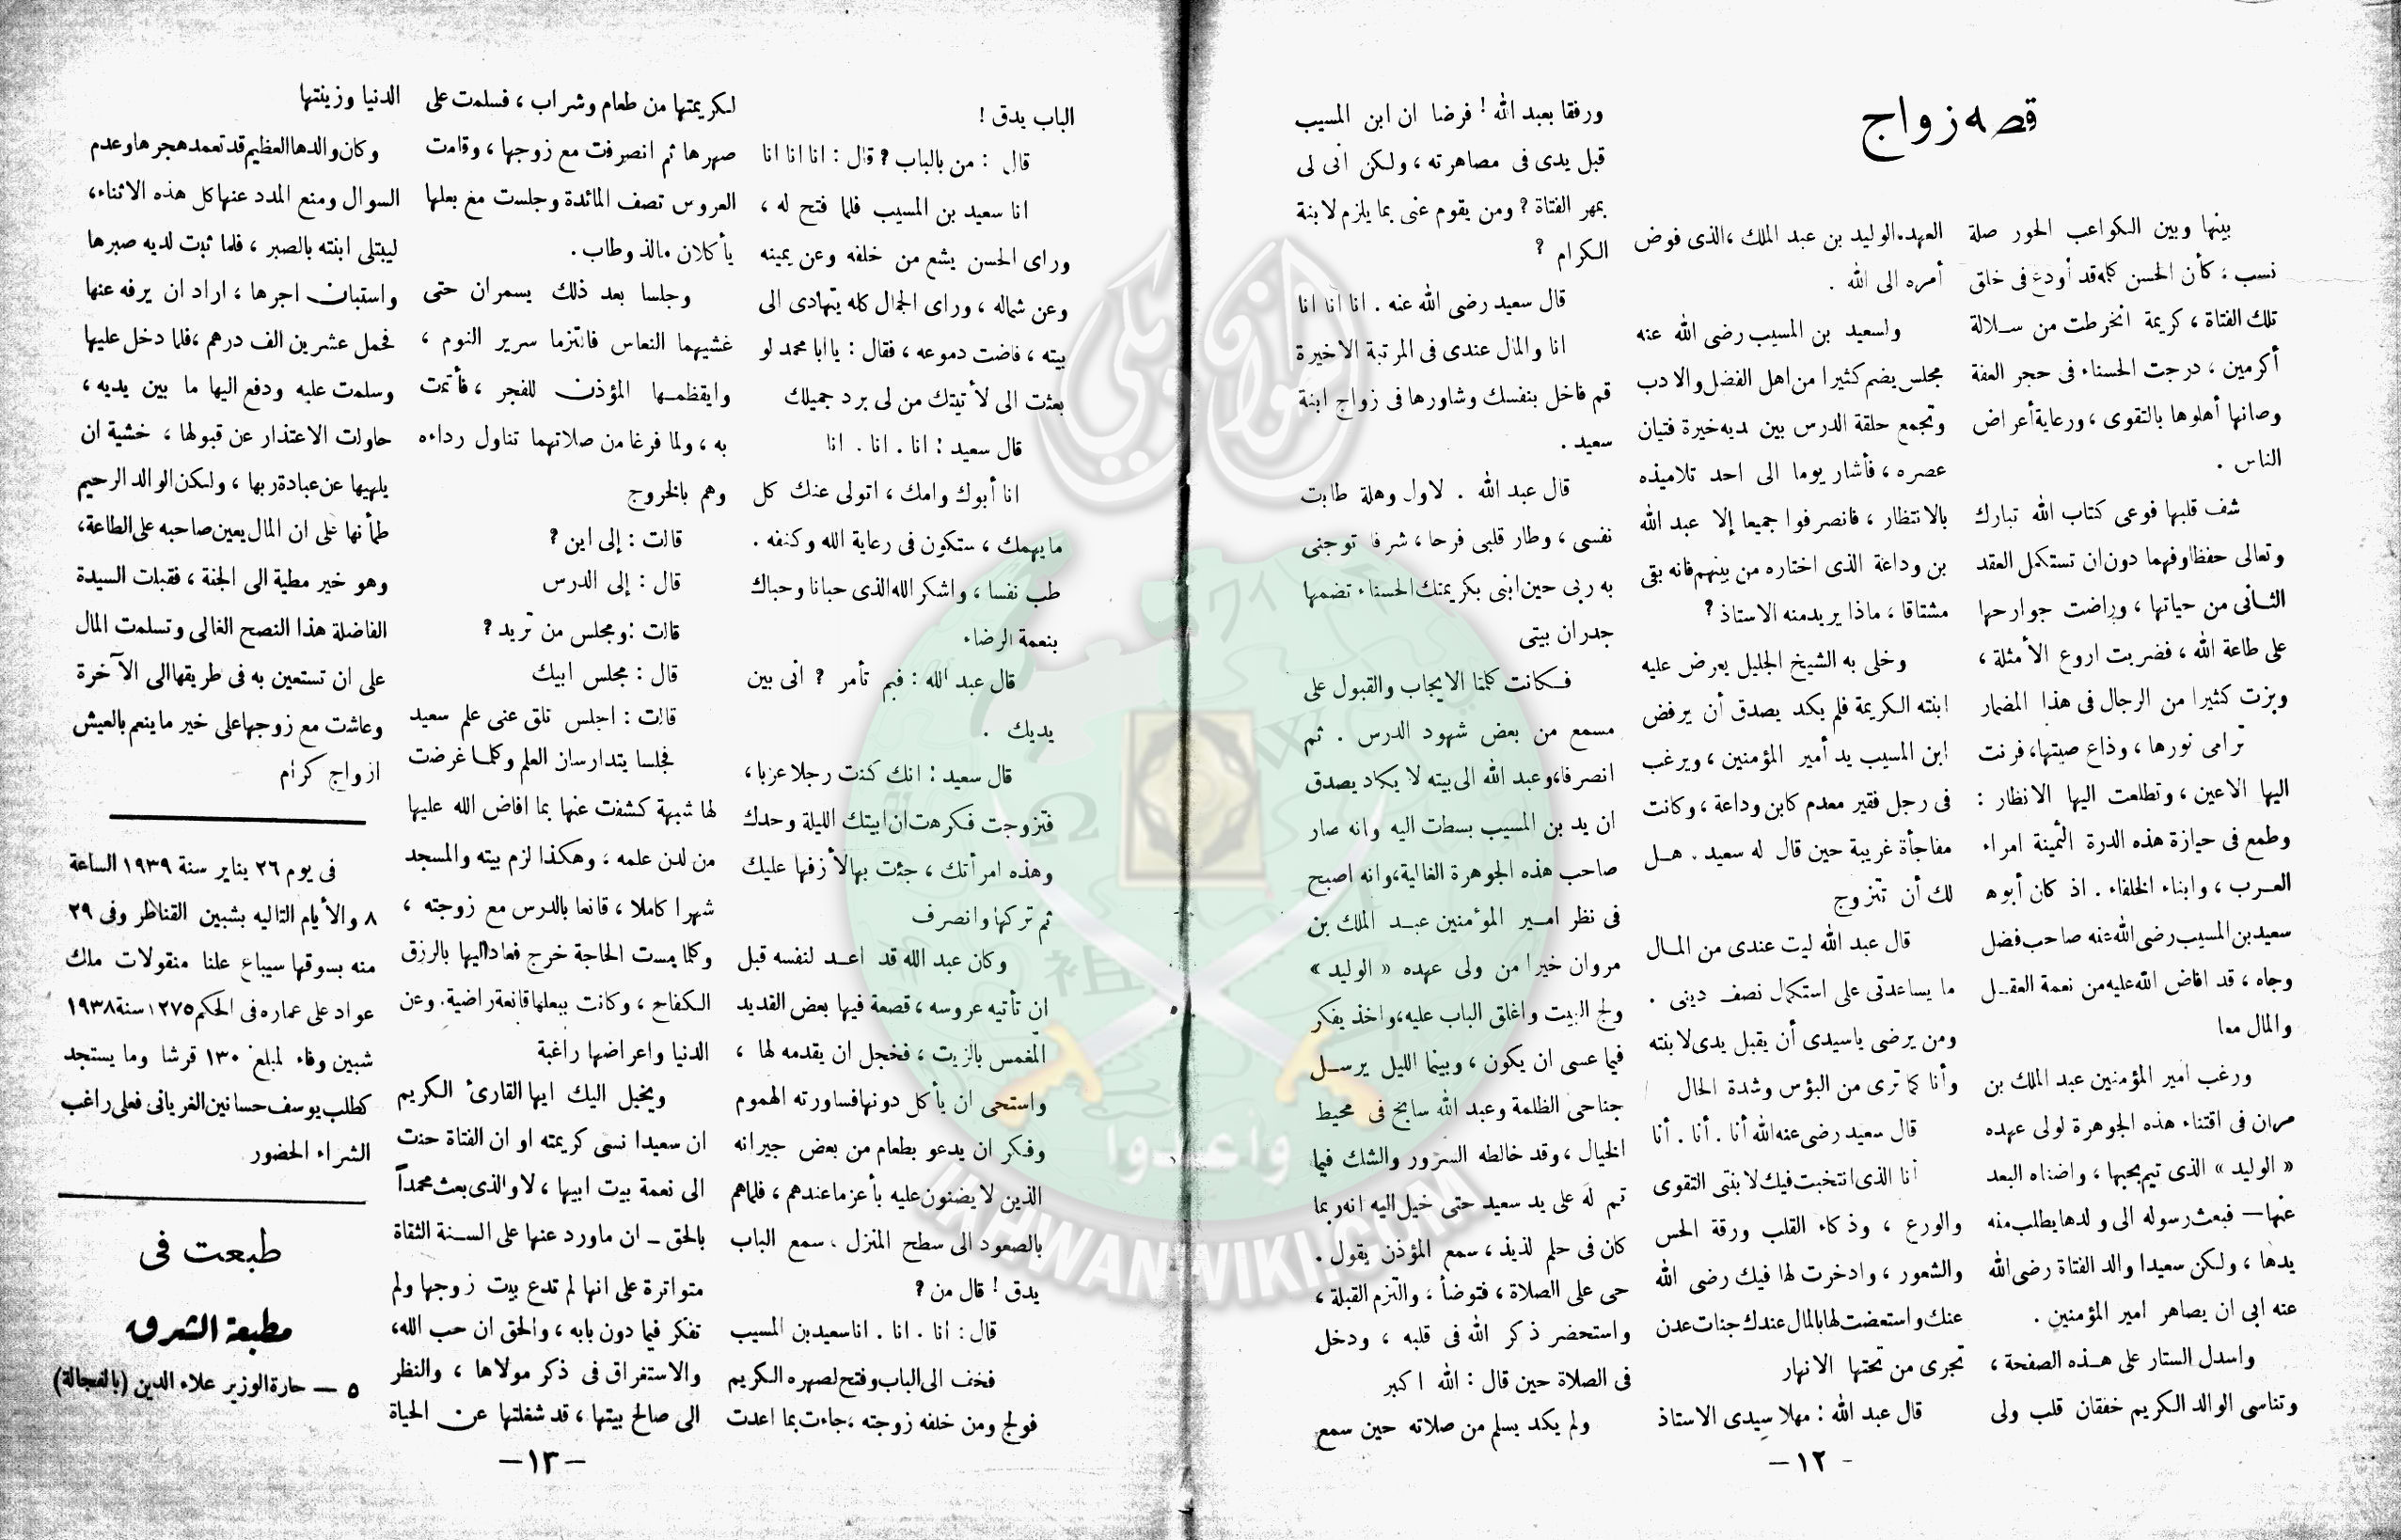 قصة زواج
بينها وبين الكواعب الحور صلة
نسب ، كأن الحسن كله قد أودع فى خلق
تلك الفتاة ، كريمة انخرطت من سلالة
أكرمين ، درجت الحسناء فى حجر العفة
وصانها أهلوها بالتقوى ، ورعاية أعراض
الناس .
شف قلبها فوعى كتاب الله تبارك
وتعالى حفظا وفهما دون ان تستكمل العقد
الثانى من حياتها ، وراضت جوارحها
على طاعة الله ، فضربت اروع الأمثلة ،
وبزت كثيرا من الرجال فى هذا المضمار
ترامى نورها ، وذاع صيتها ، فرنت
اليها الاعين ، وتطلعت اليها الانظار :
وطمع فى حيازة هذه الدرة الثمينة امراء
العرب ، وابناء الخلفاء . اذ كان أبوها
سعيد بن المسيب رضى الله عنه صاحب فضل
وجاه ، قد افاض الله عليه من نعمة العقل
والمال معا
ورغب امير المؤمنين عبد الملك بن
مران فى اقتناء هذه الجوهرة لولى عهده
« الوليد » الذى تيم بحبها ، واضناه البعد
عنها — فبعث رسوله الى ولدها يطلب منه
يدها ، ولكن سعيدا والد الفتاة رضى الله
عنه ابى ان يصاهر امير المؤمنين .
واسدل الستار على هذه الصفحة ،
وتناسى الوالد الكريم خفقان قلب ولى
العهد . الوليد بن عبد الملك ، الذى فوض
أمره الى الله .
ولسعيد بن المسيب رضى الله عنه
مجلس يضم كثيرا من اهل الفضل والادب
وتجمع حلقة الدرس بين يديه خيرة فتيان
عصره ، فأشار يوما الى احد تلاميذه
بالانتظار ، فانصرفوا جميعا إلا عبد الله
بن وداعة الذى اختاره من بينهم فانه بقى
مشتاقا ، ماذا يريد منه الاستاذ ?
وخلى به الشيخ الجليل يعرض عليه
ابنته الكريمة فلم يكد يصدق أن يرفض
ابن المسيب يد أمير المؤمنين ، ويرغب
فى رجل فقير معدم كابن وداعة ، وكانت
مفاجأة غريبة حين قال له سعيد . هل
لك أن تتزوج
قال عبد الله ليت عندى من المال
ما يساعدنى على استكمال نصف دينى .
ومن يرضى ياسيدى أن يقبل يدى لابنته
وأنا كما ترى من البؤس وشدة الحال
قال سعيد رضى عنه الله أنا . أنا . أنا
أنا الذى انتخبت فيك لابنتى التقوى
والورع ، وذكاء القلب ورقة الحس
والشعور ، وادخرت لها فيك رضى الله
عنك واستعضت لها بالمال عندك جنات عدن
تجرى من تحتها الانهار
قال عبد الله : مهلا سيدى الاستاذ
ورفقا بعبد الله ! فرضا ان ابن المسيب
قبل يدى فى مصاهرته ، ولكن انى لى
بمهر الفتاة ? ومن يقوم عنى بما يلزم لابنة
الكرام ?
قال سعيد رضى الله عنه . انا انا انا
انا والمال عندى فى المرتبة الاخيرة
قم فاخل بنفسك وشاورها فى زواج ابنة
سعيد .
قال عبد الله . لاول وهلة طابت
نفسى ، وطار قلبى فرحا ، شرفا توجنى
به ربى حين ابنى بكريمتك الحسناء تضمها
جدران بيتى
فكانت كلمتا الايجاب والقبول على
مسمع من بعض شهود الدرس . ثم
انصرفا ، وعبد الله الى بيته لا يكاد يصدق
ان يد بن المسيب بسطت اليه وانه صار
صاحب هذه الجوهرة الغالية ، وانه اصبح
فى نظر امير المؤمنين عبد الملك بن
مروان خيرا من ولى عهده « الوليد »
ولج البيت واغلق الباب عليه ، واخذ يفكر
فيما عسى ان يكون ، وبينما الليل يرسل
جناحى الظلمة وعبد الله سابح فى محيط
الخيال ، وقد خالطه السرور والشك فيما
تم له على يد سعيد حتى خيل اليه انه ربما
كان فى حلم لذيذ ، سمع المؤذن يقول .
حى على الصلاة ، فتوضأ ، والتزم القبلة ،
واستحضر ذكر الله فى قلبه ، ودخل
فى الصلاة حين قال : الله اكبر
ولم يكد يسلم من صلاته حين سمع
- ١٢ —
الباب يدق !
قال : من بالباب ? قال : انا انا انا
انا سعيد بن المسيب فلما فتح له ،
وراى الحسن يشع من خلفه وعن يمينه
وعن شماله ، وراى الجمال كله يتهادى الى
بيته ، فاضت دموعه ، فقال : يا ابا محمد لو
بعثت الى لأتيتك من لى برد جميلك
قال سعيد : انا . انا . انا
انا أبوك وامك ، اتولى عنك كل
مايهمك ، ستكون فى رعاية الله وكنفه .
طب نفسا ، واشكر الله الذى حبانا وحباك
بنعمة الرضاء
قال عبد الله : فبم تأمر ? انى بين
يديك .
قال سعيد : انك كنت رجلا عزبا ،
فتزوجت فكرهت ان ابيتك الليلة وحدك
وهذه امرأتك ، جئت بها لأزفها عليك
ثم تركها وانصرف
وكان عبد الله قد اعد لنفسه قبل
ان تأتيه عروسه ، قصعة فيها بعض القديد
المغمس بالزيت ، فخجل ان يقدمه لها ،
واستحى ان يأكل دونها فساورته الهموم
وفكر ان يدعو بطعام من بعض جيرانه
الذين لا يضنون عليه بأعز ما عندهم ، فلما هم
بالصعود الى سطح المنزل ، سمع الباب
يدق ! قال من ?
قال : انا . انا . انا سعيد بن المسيب
فخف الى الباب وفتح لصهره الكريم
فولج ومن خلفه زوجته ، جاءت بما اعدت
لكريمتها من طعام وشراب ، فسلمت على
صهرها ثم انصرفت مع زوجها ، وقامت
العروس تصف المائدة وجلست مع بعلها
يأكلان مالذ وطاب .
وجلسا بعد ذلك يسمران حتى
غشيهما النعاس فالتزما سرير النوم ،
وايقظهما المؤذن للفجر ، فأتمت
به ، ولما فرغا من صلاتهما تناول رداءه
وهم بالخروج
قالت : إلى اين ?
قال : إلى الدرس
قالت : ومجلس من تريد ?
قال : مجلس ابيك
قالت : اجلس تلق عنى علم سعيد
فجلسا يتدارسان العلم وكلما عرضت
لها شبهة كشفت عنها بما افاض الله عليها
من لدن علمه ، وهكذا لزم بيته والمسجد
شهرا كاملا ، قانعا بالدرس مع زوجته ،
وكلما مست الحاجة خرج فعاد اليها بالرزق
الكفاح ، وكانت ببعلها قانعة راضية . وعن
الدنيا واعراضها راغبة
ويخيل اليك ايها القارئ الكريم
ان سعيدا نسى كريمته او ان الفتاة حنت
الى نعمة بيت ابيها ، لا والذى بعث محمداً
بالحق - ان ماورد عنها على السنة الثقاة
متواترة على انها لم تدع بيت زوجها ولم
تفكر فيما دون بابه ، والحق ان حب الله ،
والاستغراق فى ذكر مولاها ، والنظر
الى صالح بيتها ، قد شغلتها عن الحياة
الدنيا وزينتها
وكان والدها العظيم قد تعمد هجرها وعدم
السوال ومنع المدد عنها كل هذه الاثناء ،
ليبتلى ابنته بالصبر ، فلما ثبت لديه صبرها
واستبان اجرها ، اراد ان يرفه عنها
فحمل عشرين الف درهم ، فلما دخل عليها
وسلمت عليه ودفع اليها ما بين يديه ،
حاولت الاعتذار عن قبولها ، خشية ان
يلهيها عن عبادة ربها ، ولكن الوالد الرحيم
طمأنها على ان المال يعين صاحبه على الطاعة ،
وهو خير مطية الى الجنة ، فقبلت السيدة
الفاضلة هذا النصح الغالى وتسلمت المال
على ان تستعين به فى طريقها الى الآخرة
وعاشت مع زوجها على خير ما ينعم بالعيش
ازواج كرام
فى يوم ٢٦ يناير سنة ١٩٣٩ الساعة
٨ والأيام التاليه بشبين القناطر وفى ٢٩
منه بسوقها سيباع علنا منقولات ملك
عواد على عماره فى الحكم ١٢٧٥ سنة ١٩٣٨
شبين وفاء لمبلغ ١٣٠ قرشا وما يستجد
كطلب يوسف حسانين الغريانى فعلى راغب
الشراء الحضور
طبعت فى
مطبعة الشرق
٥ — حارة الوزير علاء الدين (بالفجالة)
—١٣—
إخوان ويكي
وأعدوا
IKHWANWIKI.COM